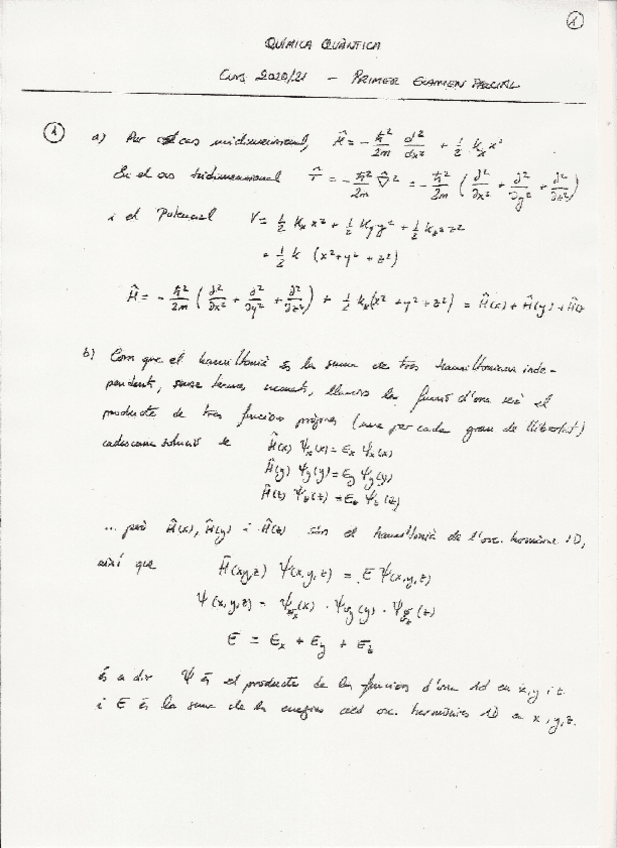 1
QUÍMICA QUÀNTICA
Curs 2020/21 - PRIMER EXAMEN PARCIAL
1 a) Per cas unidimensional, Ĥ = - ℏ²/2m d²/dx² + 1/2 kₓ x²
En el cas tridimensional T̂ = - ℏ²/2m ∇̂² = - ℏ²/2m (∂²/∂x² + ∂²/∂y² + ∂²/∂z²)
i el Potencial V = 1/2 kₓ x² + 1/2 k_y y² + 1/2 k_z z²
= 1/2 k (x² + y² + z²)
Ĥ = - ℏ²/2m (∂²/∂x² + ∂²/∂y² + ∂²/∂z²) + 1/2 k (x² + y² + z²) = Ĥ(x) + Ĥ(y) + Ĥ(z
b) Com que el hamiltonià és la suma de tres hamiltonians inde-
pendents, sense termes creuats, llavors la funció d'ona serà el
producte de tres funcions pròpies (una per cada grau de llibertat)
cadascuna solució de Ĥ(x) Ψₓ(x) = Eₓ Ψₓ(x)
Ĥ(y) Ψ_y(y) = E_y Ψ_y(y)
Ĥ(z) Ψ_z(z) = E_z Ψ_z(z)
... però Ĥ(x), Ĥ(y) i Ĥ(z) són el hamiltonià de l'osc. harmònic 1D,
així que Ĥ(x,y,z) Ψ(x,y,z) = E Ψ(x,y,z)
Ψ(x,y,z) = Ψ_Eₓ(x) · Ψ_E_y(y) · Ψ_E_z(z)
E = Eₓ + E_y + E_z
és a dir Ψ és el producte de les funcions d'ona 1d en x, y i z.
i E és la suma de les energies osc. harmònics 1D en x, y, z.